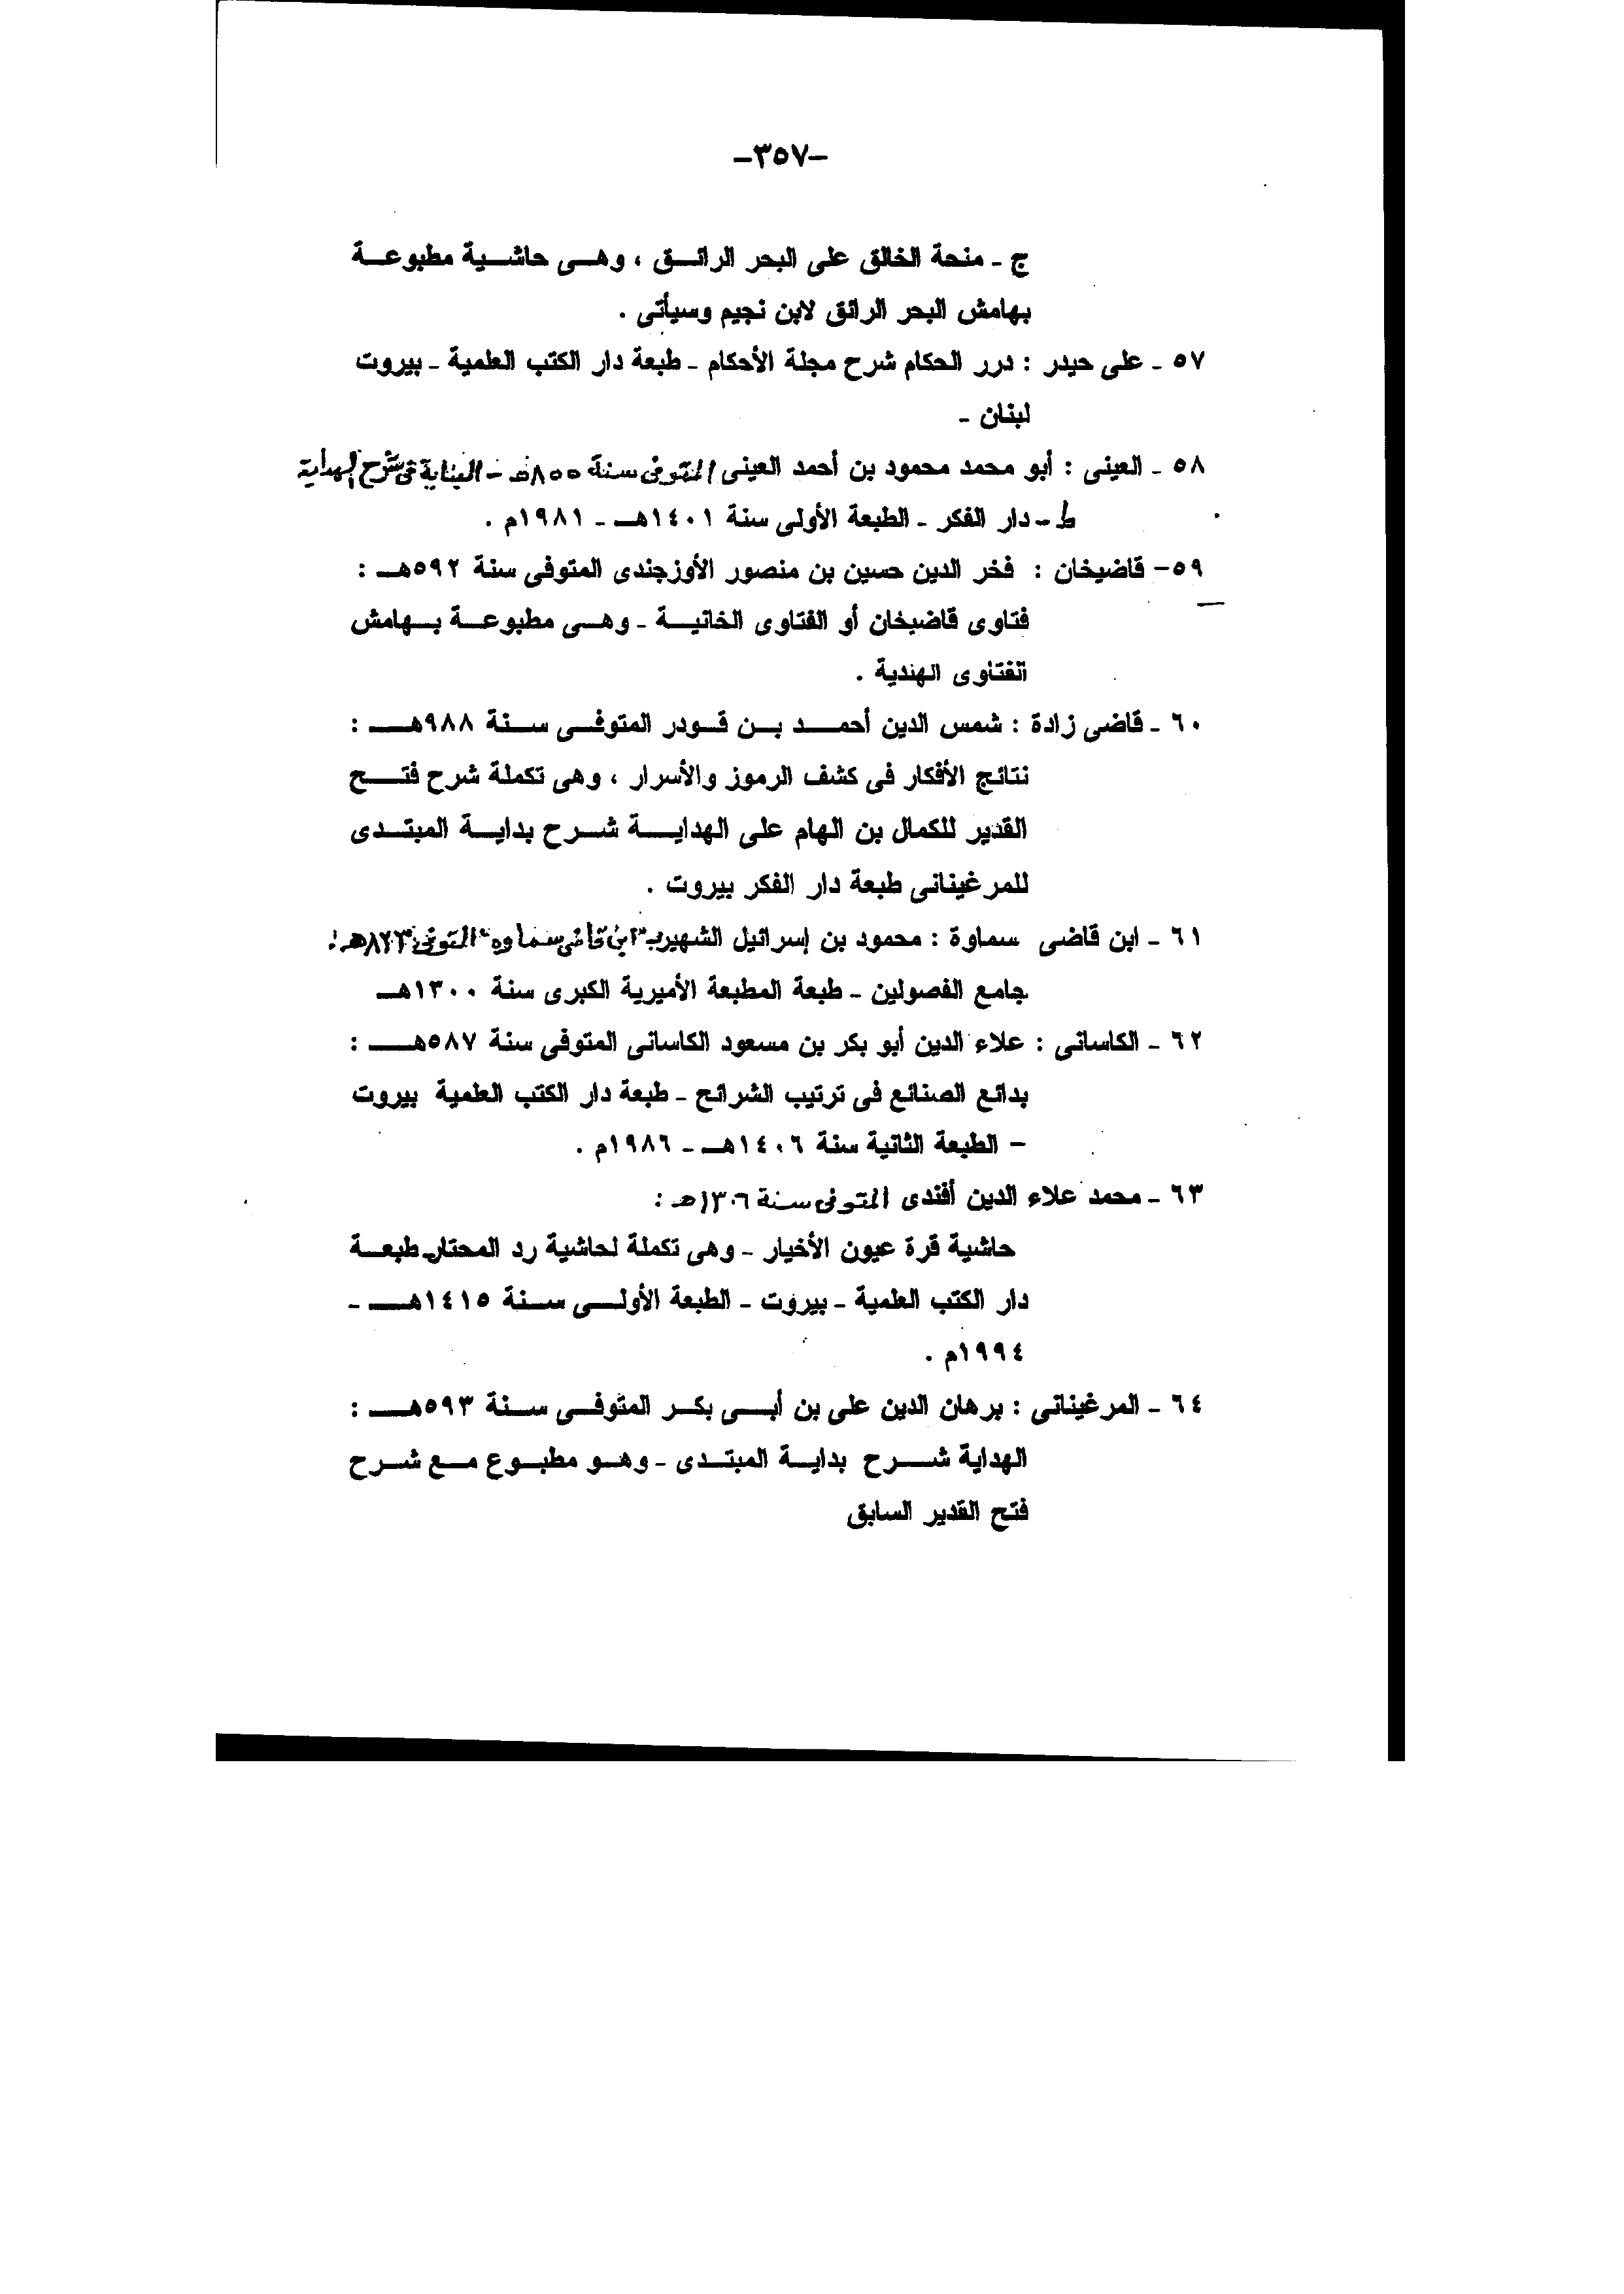 -٣٥٧-
ج - منحة الخالق على البحر الرائق ، وهى حاشية مطبوعة
بهامش البحر الرائق لابن نجيم وسيأتى .
٥٧ - على حيدر : درر الحكام شرح مجلة الأحكام - طبعة دار الكتب العلمية - بيروت
لبنان -
٥٨ - العينى : أبو محمد محمود بن أحمد العينى المتوفى سنة ٨٥٥هـ - البناية فى شرح الهداية
ط - دار الفكر - الطبعة الأولى سنة ١٤٠١هـ - ١٩٨١م .
٥٩- قاضيخان : فخر الدين حسين بن منصور الأوزجندى المتوفى سنة ٥٩٢هـ :
فتاوى قاضيخان أو الفتاوى الخانية - وهى مطبوعة بهامش
الفتاوى الهندية .
٦٠ - قاضى زادة : شمس الدين أحمد بن قودر المتوفى سنة ٩٨٨هـ :
نتائج الأفكار فى كشف الرموز والأسرار ، وهى تكملة شرح فتح
القدير للكمال بن الهام على الهداية شرح بداية المبتدى
للمرغينانى طبعة دار الفكر بيروت .
٦١ - ابن قاضى سماوة : محمود بن إسرائيل الشهير بـ "ابن قاضى سماوه" المتوفى ٨٢٣هـ :
جامع الفصولين - طبعة المطبعة الأميرية الكبرى سنة ١٣٠٠هـ
٦٢ - الكاسانى : علاء الدين أبو بكر بن مسعود الكاسانى المتوفى سنة ٥٨٧هـ :
بدائع الصنائع فى ترتيب الشرائح - طبعة دار الكتب العلمية بيروت
- الطبعة الثانية سنة ١٤٠٦هـ - ١٩٨٦م .
٦٣ - محمد علاء الدين أفندى المتوفى سنة ١٣٠٦هـ :
حاشية قرة عيون الأخيار - وهى تكملة لحاشية رد المحتار- طبعة
دار الكتب العلمية - بيروت - الطبعة الأولى سنة ١٤١٥هـ -
١٩٩٤م .
٦٤ - المرغينانى : برهان الدين على بن أبى بكر المتوفى سنة ٥٩٣هـ :
الهداية شرح بداية المبتدى - وهو مطبوع مع شرح
فتح القدير السابق